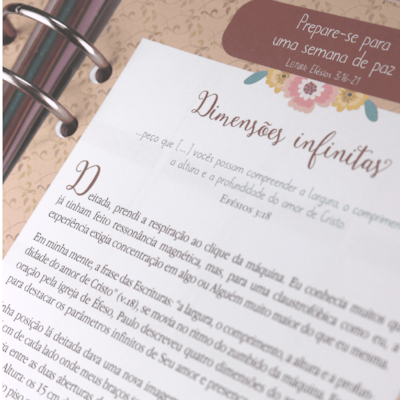 Prepare-se para
uma semana de paz
Leitura: Efésios 3:16-21
Dimensões infinitas
...peço que [...] vocês possam compreender a largura, o comprimento,
a altura e a profundidade do amor de Cristo.
Efésios 3:18
Deitada, prendi a respiração ao clique da máquina. Eu conhecia muitos que
já tinham feito ressonância magnética, mas, para uma claustrofóbica como eu, a
experiência exigia concentração em algo ou Alguém muito maior do que eu mesma.
Em minha mente, a frase das Escrituras: "a largura, o comprimento, a altura e a profun-
didade do amor de Cristo" (v.18), se movia no ritmo do zumbido da máquina. Em
oração pela igreja de Éfeso, Paulo descreveu quatro dimensões do
para destacar os parâmetros infinitos de Seu amor e presença
posição já deitada dava uma nova imagem
cm de cada lado onde meus braços
entre as duas aberturas
Altura: os 15 cm
piso